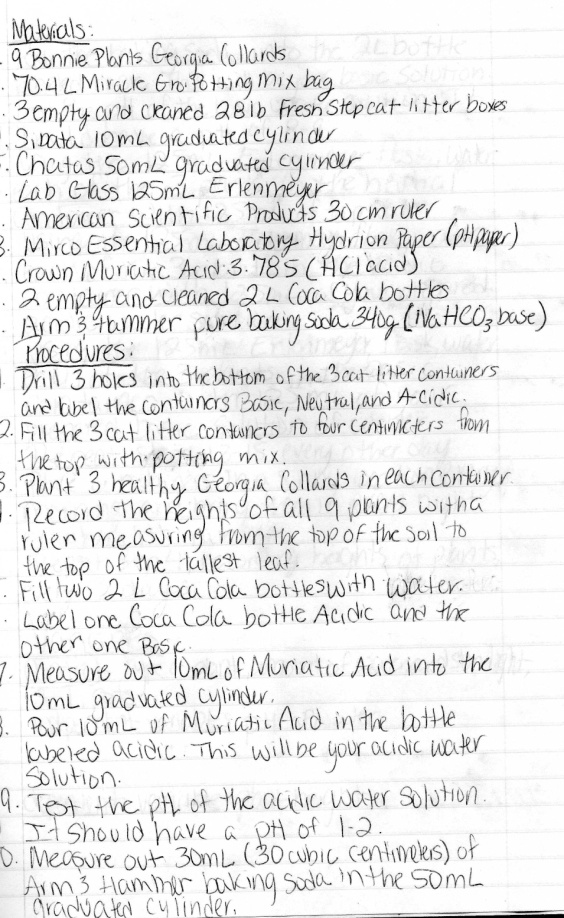 Materials:
9 Bonnie Plants Georgia Collards
70.4 L Miracle Gro Potting mix bag
3 empty and cleaned 28 lb Fresh Step cat litter boxes
Sibata 10mL graduated cylinder
Chatas 50mL graduated cylinder
Lab Glass 125mL Erlenmeyer
American Scientific Products 30 cm ruler
8. Mirco Essential Laboratory Hydrion Paper (pH paper)
Crown Muriatic Acid 3.785 (HCl acid)
2 empty and cleaned 2 L Coca Cola bottles
Arm & Hammer pure baking soda 340g (NaHCO3 base)
Procedures:
Drill 3 holes into the bottom of the 3 cat litter containers
and label the containers Basic, Neutral, and Acidic.
2. Fill the 3 cat litter containers to four centimeters from
the top with potting mix.
3. Plant 3 healthy Georgia Collards in each container.
Record the heights of all 9 plants with a
ruler measuring from the top of the soil to
the top of the tallest leaf.
Fill two 2 L Coca Cola bottles with water.
Label one Coca Cola bottle Acidic and the
other one Basic.
7. Measure out 10mL of Muriatic Acid into the
10mL graduated cylinder.
8. Pour 10mL of Muriatic Acid in the bottle
labeled acidic. This will be your acidic water
solution.
9. Test the pH of the acidic water solution.
It should have a pH of 1-2.
0. Measure out 30mL (30 cubic centimeters) of
Arm & Hammer baking soda in the 50mL
graduated cylinder.